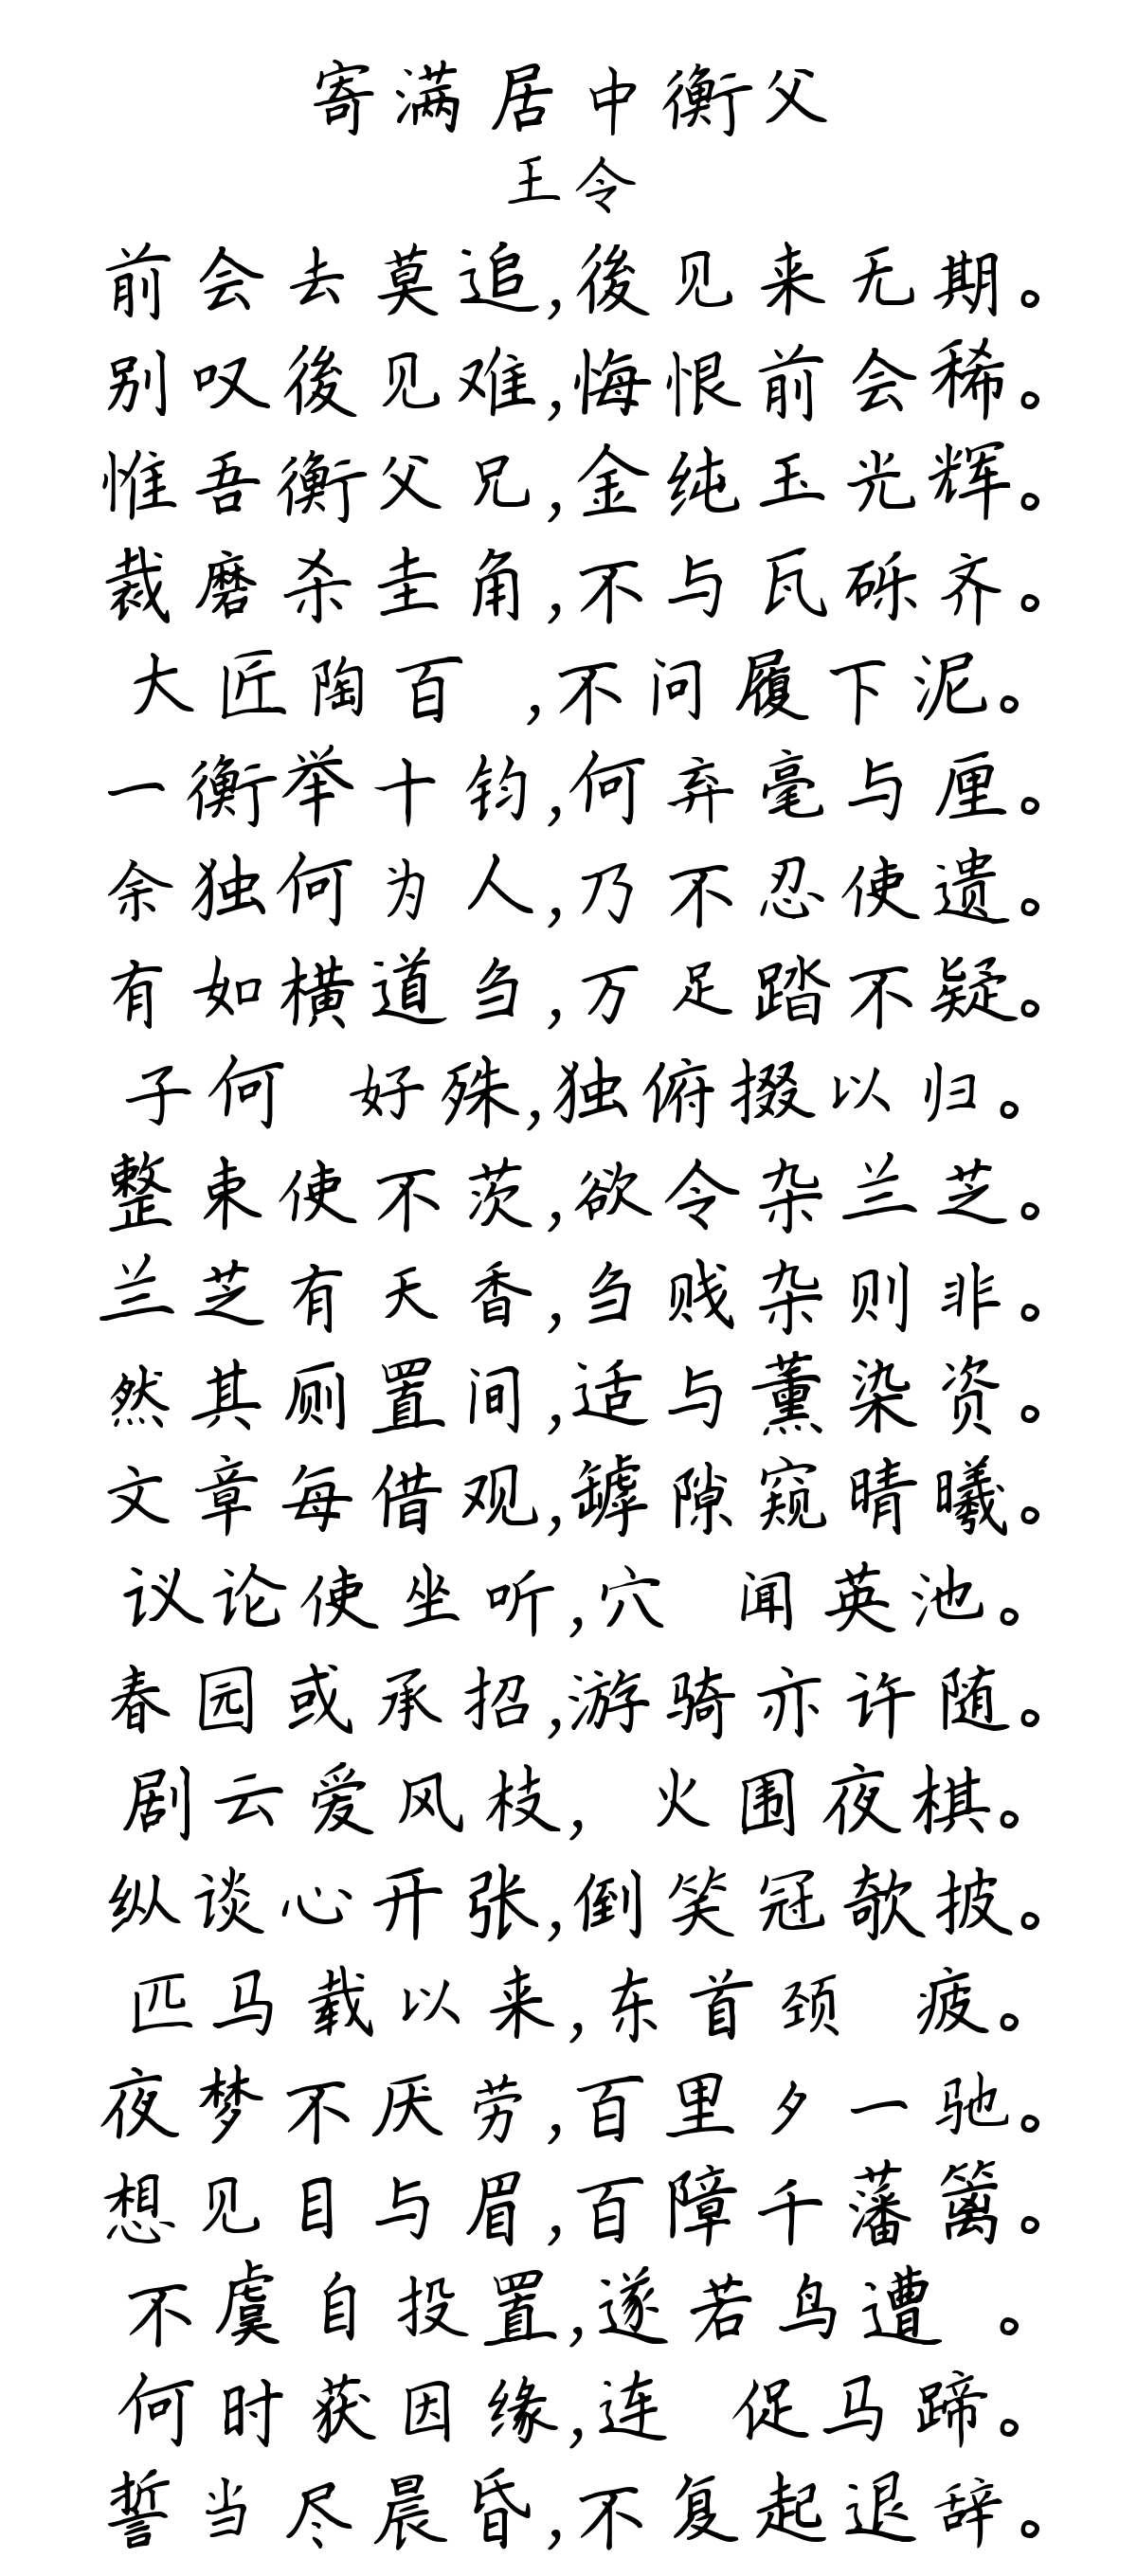 寄满居中衡父
王令
前会去莫追,後见来无期。
别叹後见难,悔恨前会稀。
惟吾衡父兄,金纯玉光辉。
裁磨杀圭角,不与瓦砾齐。
大匠陶百 ,不问履下泥。
一衡举十钧,何弃毫与厘。
余独何为人,乃不忍使遗。
有如横道刍,万足踏不疑。
子何 好殊,独俯掇以归。
整束使不茨,欲令杂兰芝。
兰芝有天香,刍贱杂则非。
然其厕置间,适与薰染资。
文章每借观,罅隙窥晴曦。
议论使坐听,穴 闻英池。
春园或承招,游骑亦许随。
剧云爱风枝, 火围夜棋。
纵谈心开张,倒笑冠欹披。
匹马载以来,东首颈 疲。
夜梦不厌劳,百里夕一驰。
想见目与眉,百障千藩篱。
不虞自投置,遂若鸟遭 。
何时获因缘,连 促马蹄。
誓当尽晨昏,不复起退辞。